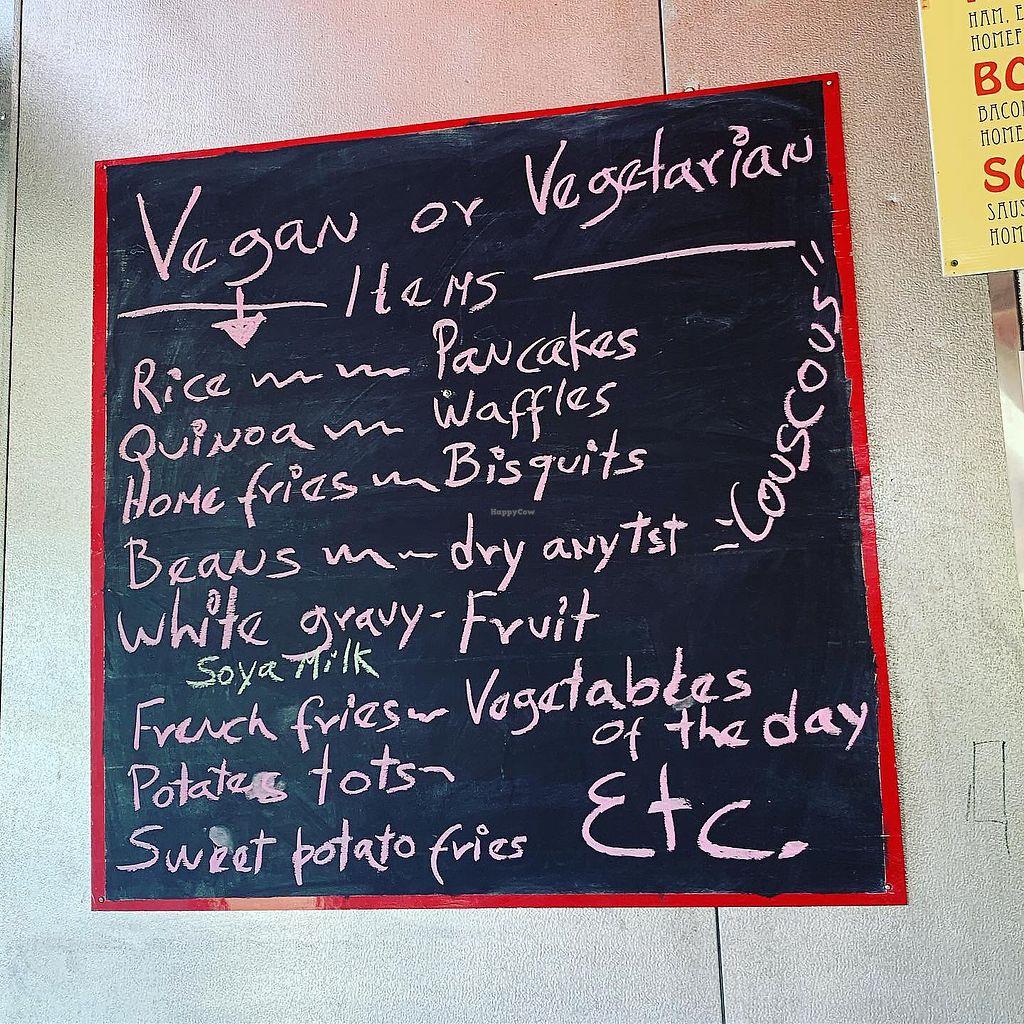 Vegan or Vegetarian
Items
Rice Pancakes
Quinoa Waffles
Home fries Bisquits
Beans dry any tst
White gravy - Fruit
Soya Milk
French fries Vegetables
of the day
Potates tots
Etc.
Sweet potato fries
"Couscous"
HappyCow
HAM, E
HOMEF
BO
BACO
HOME
SO
SAUS
HOM